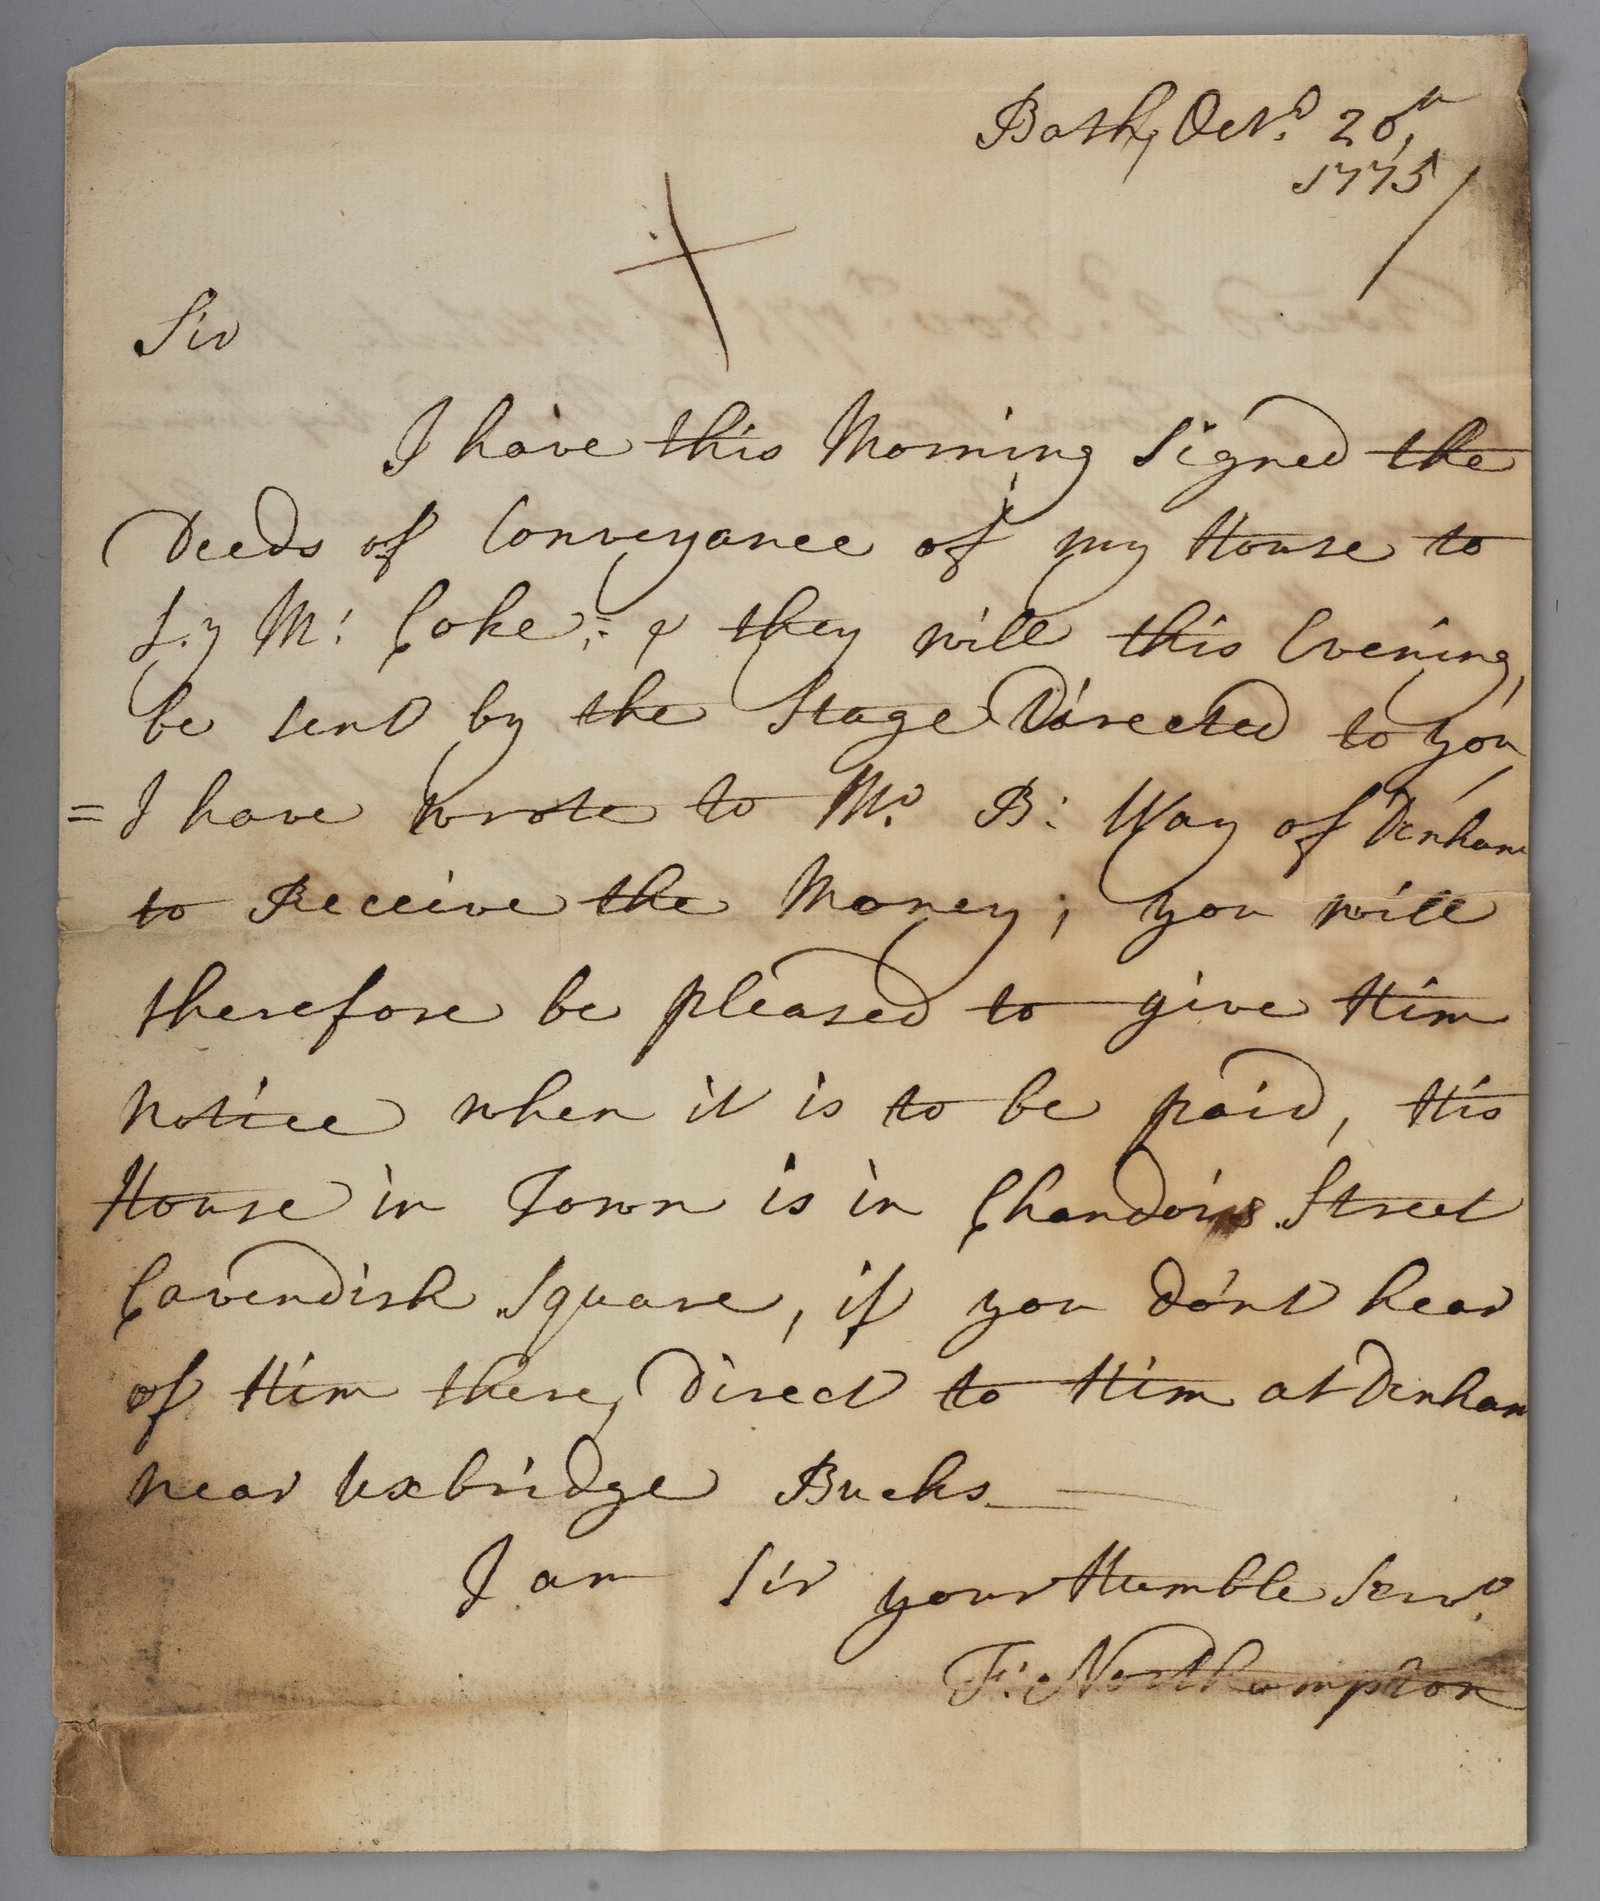 Bath, Octr. 20th,
1775
Sir
I have this Morning Signed the
Deeds of Conveyance of my House to
Ly M: Coke; & they will this Evening,
be sent by the Stage Directed to you,
= I have wrote to Mr. B: Way of Denham
to Receive the Money; you will
therefore be pleased to give Him
notice when it is to be paid, His
House in Town is in Chandois Street
Cavendish Square, if you do'nt hear
of Him there, Direct to Him at Denham
near Uxbridge Bucks
I am Sir your Humble Servt.
F: Northampton